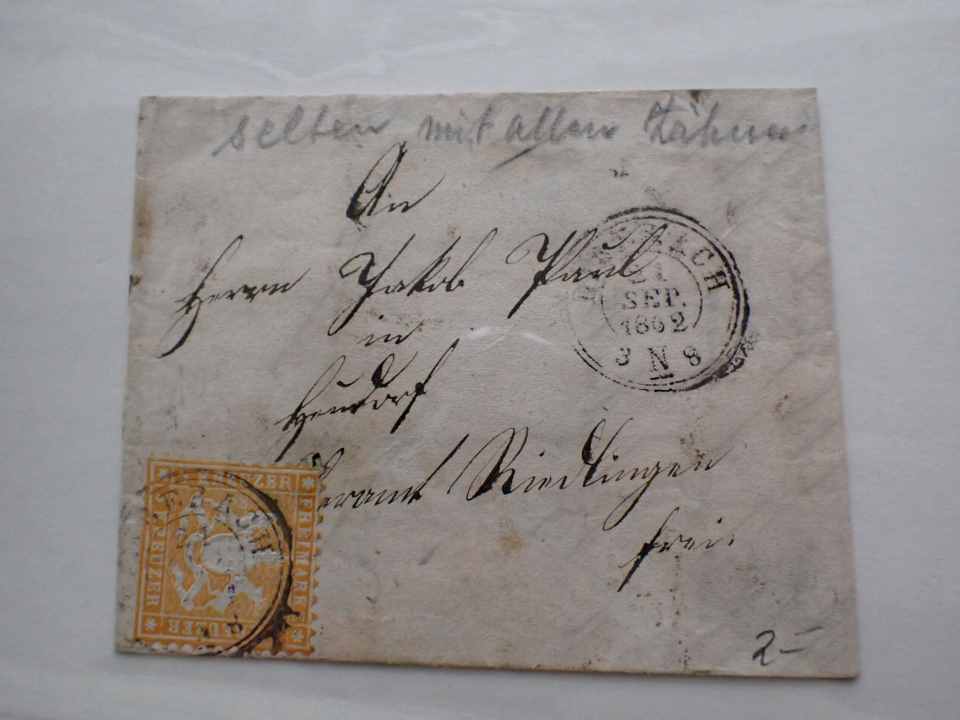 selten mit allen Zähnen
An
Herrn Jakob Paul
in
Heudorf
Oberamt Riedlingen
frei.
21
SEP.
1862
3 N 8
KREUZER
FREIMARKE
KREUZER
2-